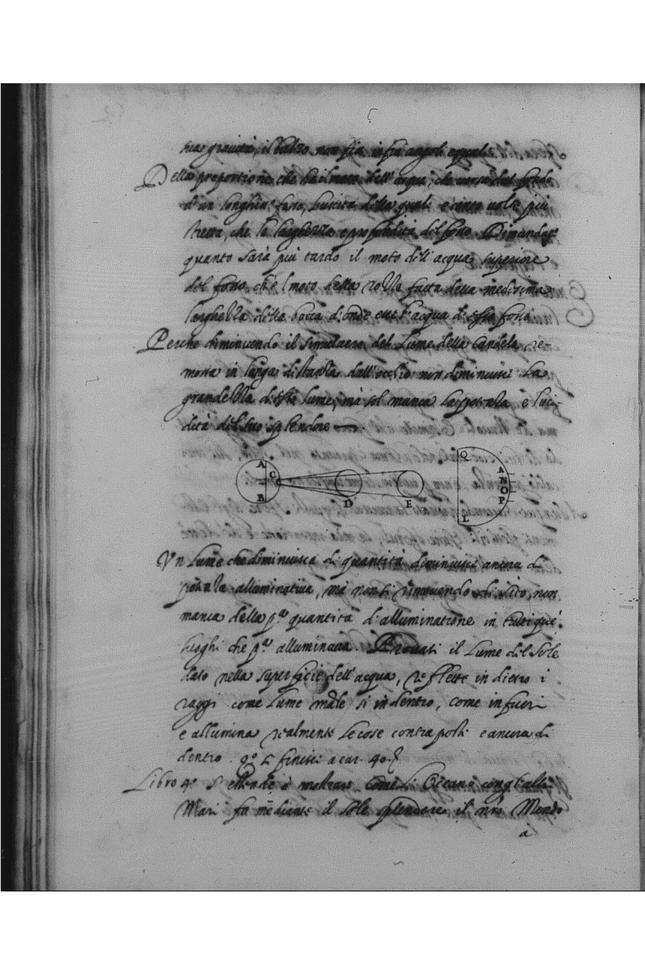 tua gravità, il balzo non sia infra angoli equali?
Della proportione che ha il moto dell'acqua, che versa dal fondo
d'un longhis: fosso, buscita della quale è cinta volte più
stretta, che la larghezza e profondità del fosso. Dimandasi
quanto sarà più tardo il moto dell'acqua superiore
del fosso, che 'l moto della rolla fatta della medesima
larghezza della bocca d'onde esce l'acqua di esso fosso
Perche diminuendo il simulacro del Lume della Candela re-
mossa in longa distanza dall'occhio non diminuisce La
grandezza d'esso Lume; mà sol manca La potenza e luci-
dità del suo splendore
A
B
C
D
E
Q
A
N
O
P
L
Un Lume che diminuisca di quantità diminuisce ancora di
potenza alluminativa, mà non rimovendo di sito, non
manca della p.ª quantità d'alluminatione in tutti que'
luoghi che p.ª alluminava. Provasi il Lume del Sole
dato nella superficie dell'acqua, reflette in dietro i
raggi come Lume sì in dentro, come in fuori
e allumina realmente Le cose contraposte e ancora di
dentro. q.º L. finisce a car. 40.
Libro 4.º S'estende à mostrare come li Oceano cong.to alli
Mari fa mediante il sole splendere il nro Mondo
a